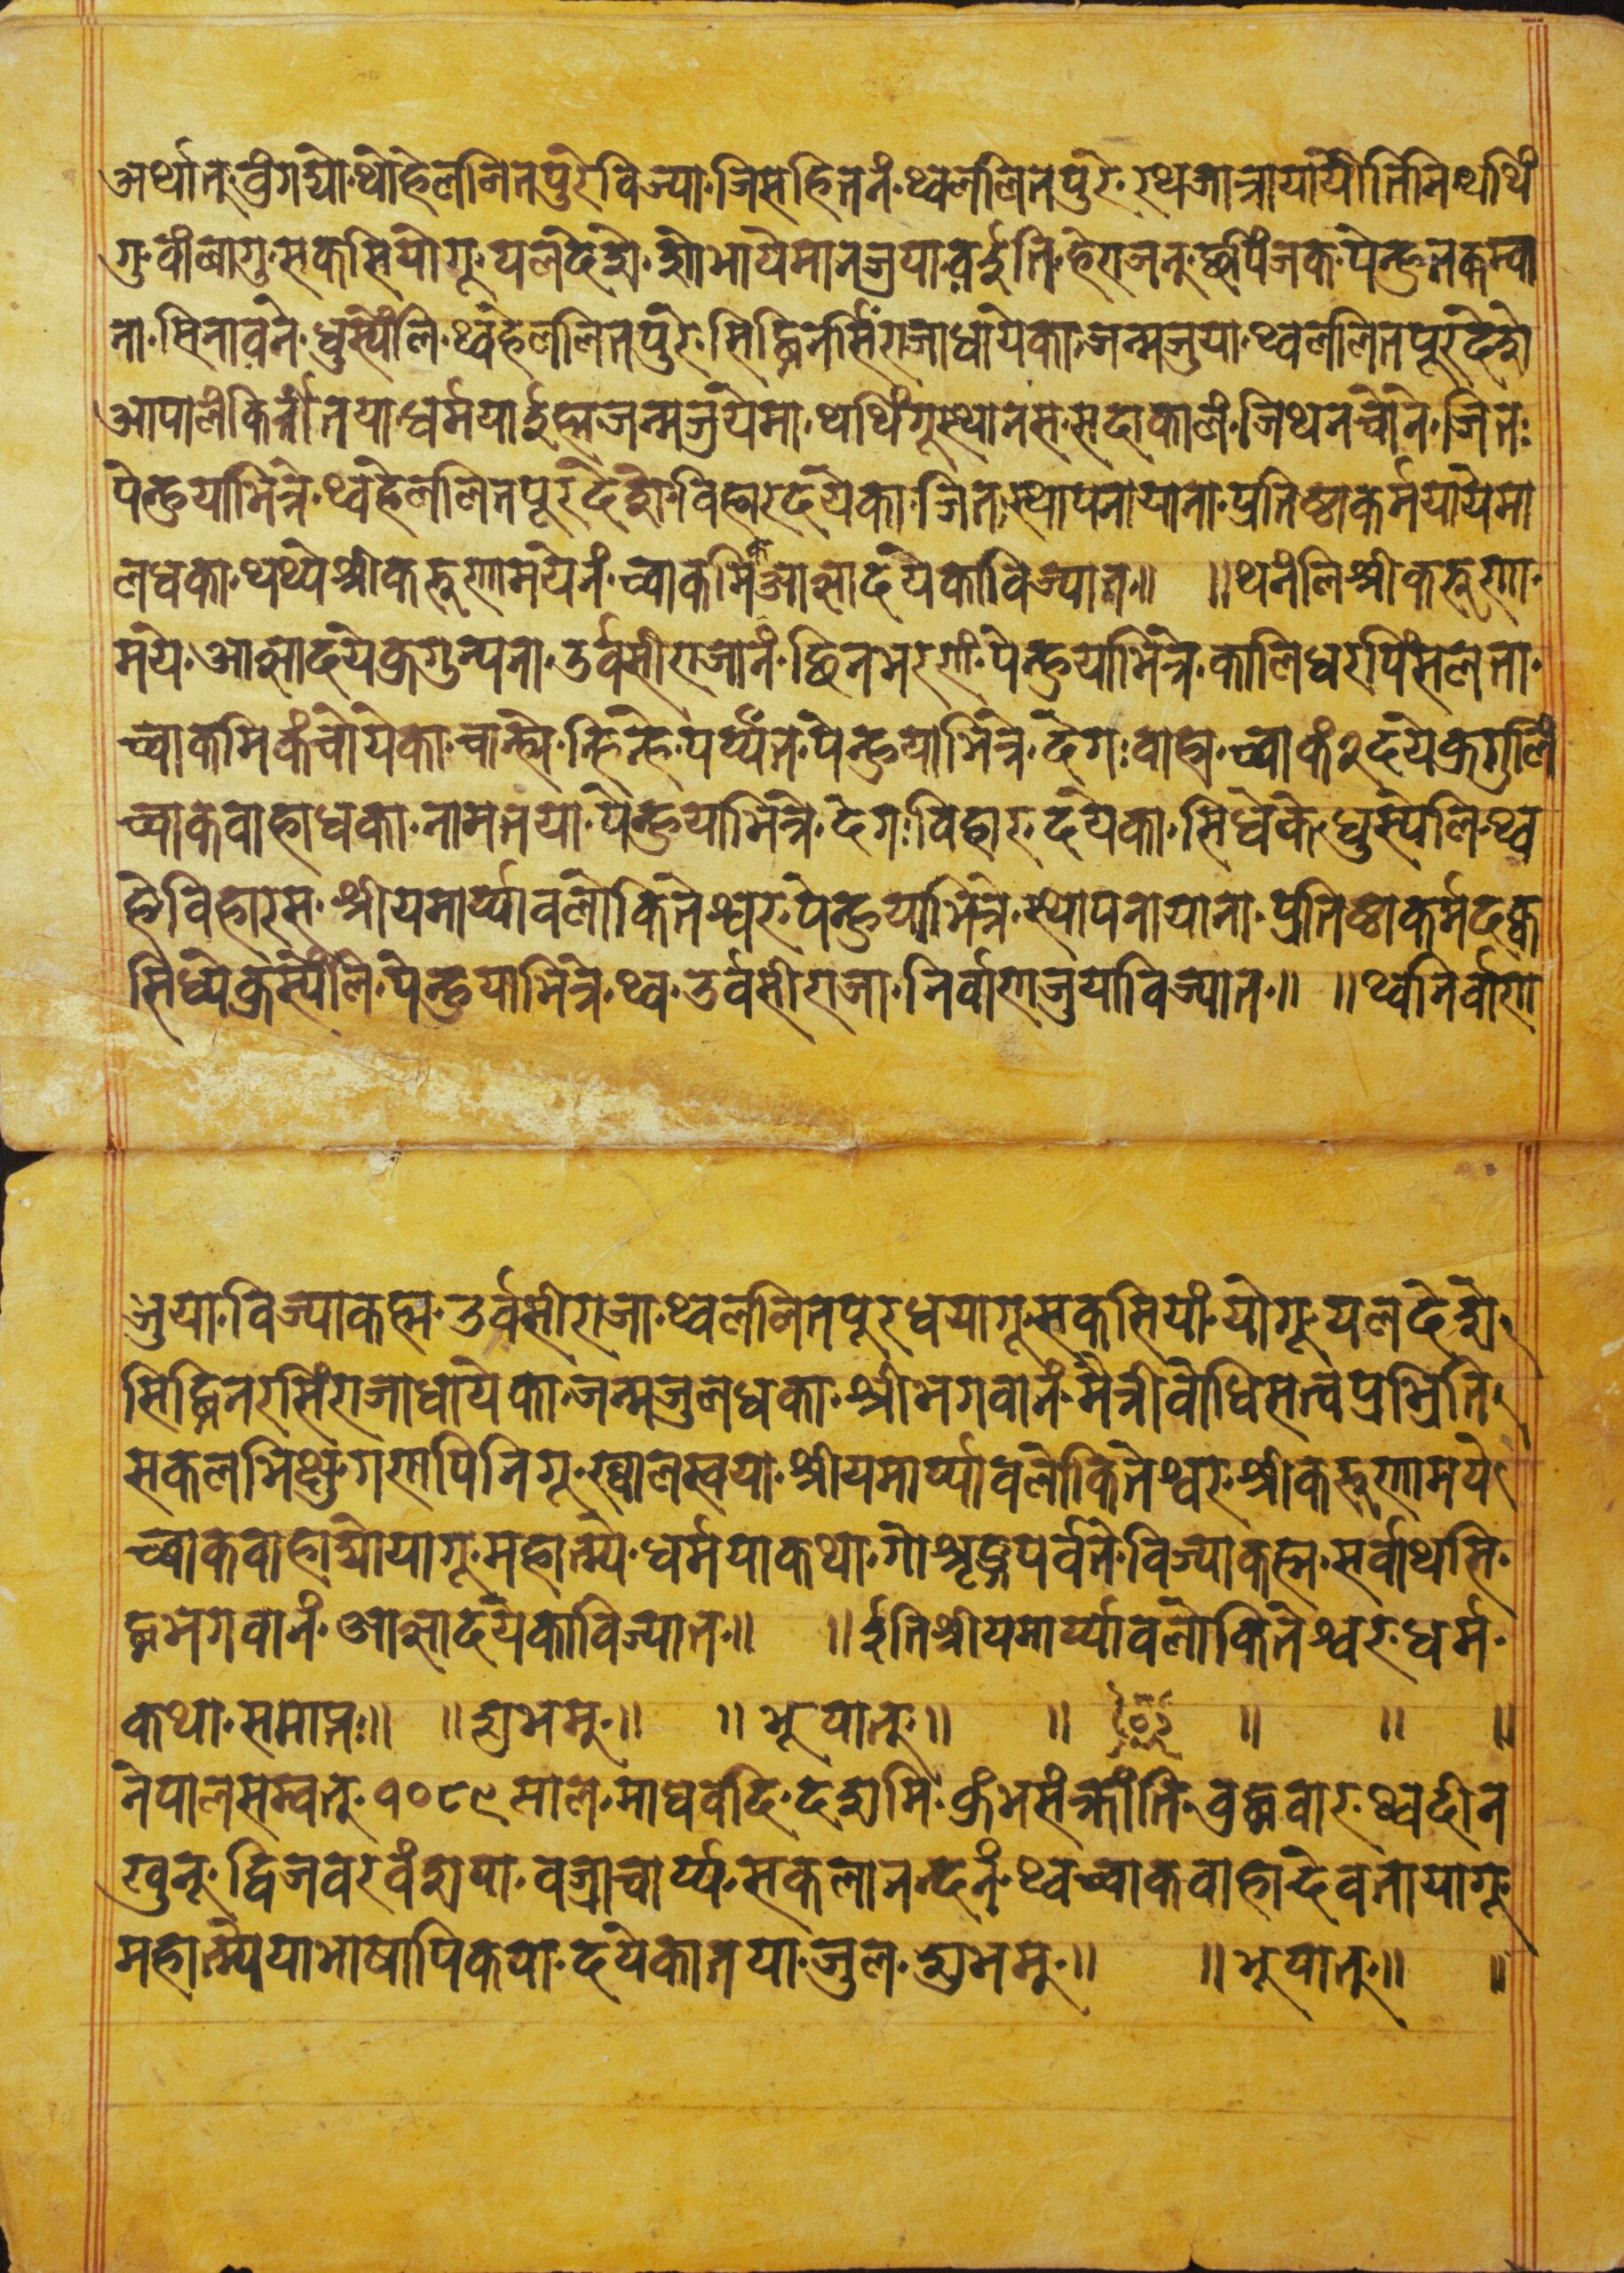 अर्थात्·वुंगद्यो·थोहेललितपुरेविज्या·जिसहितनं·थ्वललितपुरे·रथजात्रायायेगीतिनि·थथिं
गु·वांलागु·सकसियांगू·यलदेशे·शोभायेमानजुयावईति·हेराजन्·छपिंजक·पेन्हुतकम्वा
ना·सिनावन·धुस्येंलि·थ्वहेललितपुरे·सिद्धिनरसिंराजाधायेका·जन्मजुया·थ्वललितपूरदेशे
आपालंकिर्त्तीतया·धर्मयाईह्मजन्मजुयेमा·थथिंगूस्थानस·सदाकालं·जिथनच्वोने·जितः
पेन्हुयाभित्रे·थ्वहेललितपूरदेशे·विहारदयेका·जित·स्थापनायाना·प्रतिष्ठाकर्मयायेमा
लधका·थथ्येश्रीकरुणामयेनं·च्वाकमिंकआज्ञादयेकाविज्यात॥ ॥थनंलिश्रीकरुणा·
मये·आज्ञादयेकूगुन्यना·उर्वसीराजानं·छिनभरणं·पेन्हुयाभित्रे·कालिधरपिंसलता·
च्वाकमिकंचोयेका·चान्ह्ये·न्हिन्हे·पर्य्यंत·पेन्हुयाभित्रे·देगः·वाहा·च्वाकं२दयेकूगुलिं
च्वाकवाहाधका·नामतया·पेन्हुयाभित्रे·देगः·विहार·दयेका·सिधेके·धुस्येलि·थ्व
हेविहारस·श्रीयमार्य्यावलोकितेश्वर·पेन्हुयाभित्रे·स्थापनायाना·प्रतिष्ठाकर्मदक्व
सिध्येकूस्येंलि·पेन्हुयाभित्रे·थ्व·उर्वसीराजा·निर्वाणजुयाविज्यात॥ ॥थ्वनिर्वाण
जुया·विज्याकह्म·उर्वसीराजा·थ्वललितपूरधयागू·सकसियां·योगू·यलदेशे
सिद्धिनरसिंराजाधायेका·जन्मजुलधका·श्रीभगवानं·मैत्रीवोधिसत्वप्रभिति
सकलभिक्षुगणपिनिगू·ख्वालस्वया·श्रीयमार्य्यावलोकितेश्वर·श्रीकरुणामये
च्वाकवाहाद्योयागू·महात्म्ये·धर्मयाकथा·गोशृङ्गपर्वते·विज्याकह्म·सर्वाथसि·
द्धभगवानं·आज्ञादयेकाविज्यात॥ ॥ईतिश्रीयमार्य्यावलोकितेश्वर·धर्म·
कथा·समाप्तः॥ ॥शुभम्॥ ॥भूयात्॥ ॥ ॥ ॥ ॥
नेपालसम्वत्·१०८९साल·माघवदि·दशमि·कुंभसंक्रांति·वुद्धवार·थ्वदीन
खुनू·द्विजवरवंशया·वज्राचार्य्य·सकलानन्दनं·थ्वच्वाकवाहादेवतायागू
महात्म्येयाभाषापिकया·दयेकातया·जुल·शुभम्॥ ॥भूयात्॥ ॥